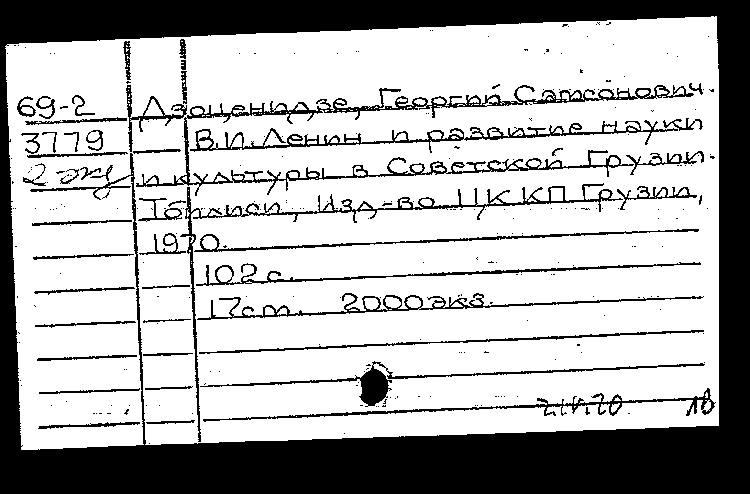 69-2 Дзоценидзе, Георгий Самсонович.
3779 В.И. Ленин и развитие науки
2 экз и культуры в Советской Грузии.
Тбилиси, Изд-во ЦК КП Грузии,
1970.
102 с.
17cm. 2000 экз.
18